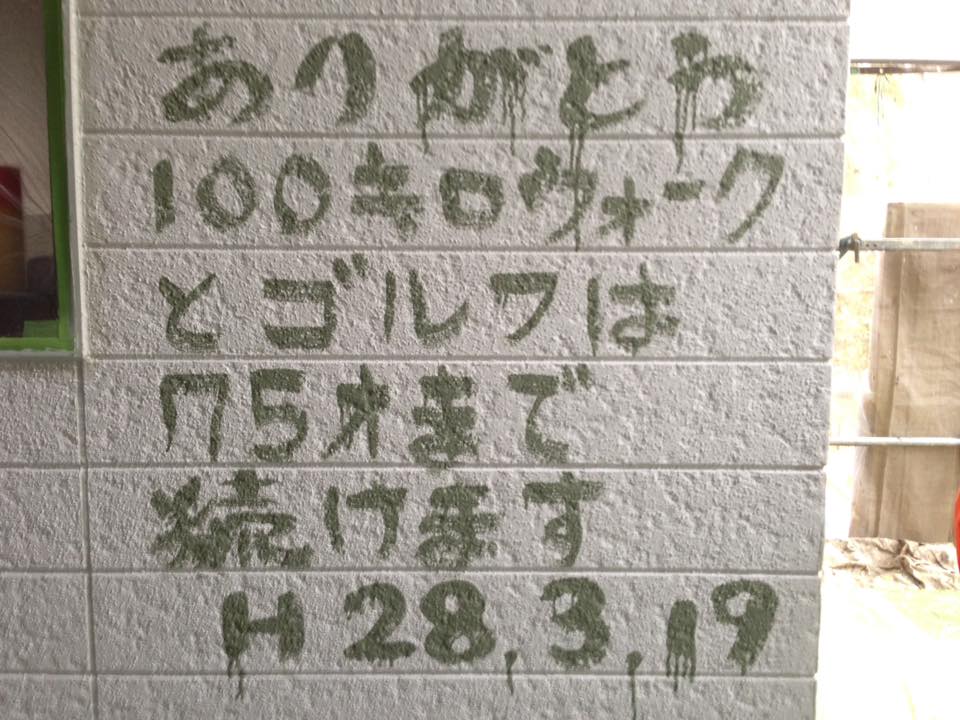 ありがとう
100キロウォーク
とゴルフは
75才まで
続けます
H28.3.19